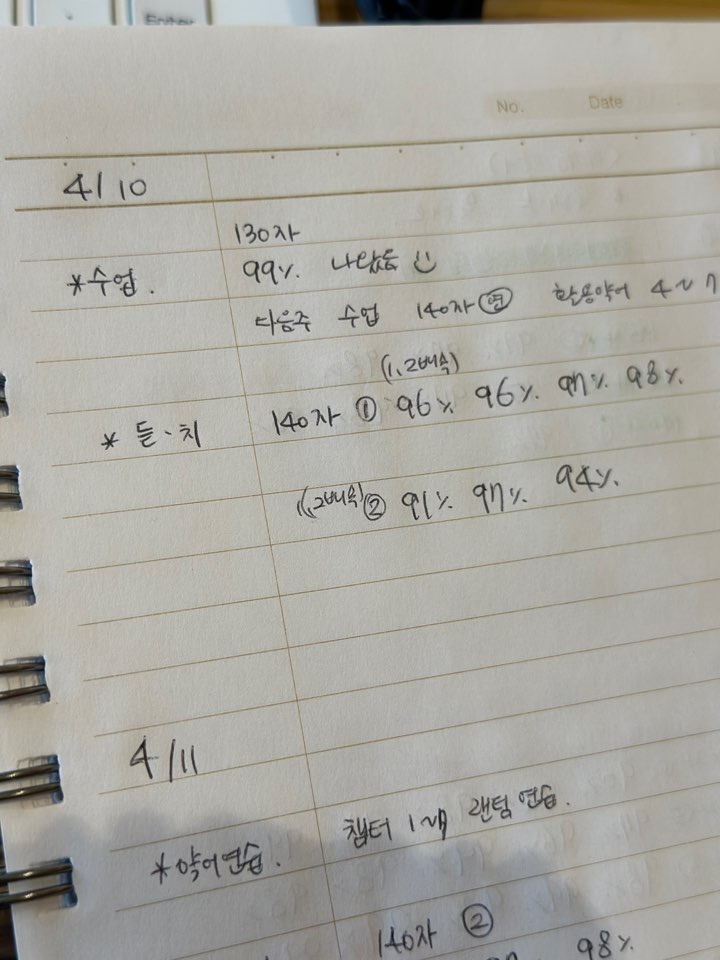 Enter
No. Date
4/10
130자
*수업. 99% 나왔음
다음주 수업 140자 연 활용약어 4~7
(1.2배속)
* 듣·치 140자 ① 96% 96% 97% 98%.
(1.2배속) ② 91% 97% 94%.
4/11
*약어연습. 챕터 1~7 랜덤 연습.
140자 ②
98%